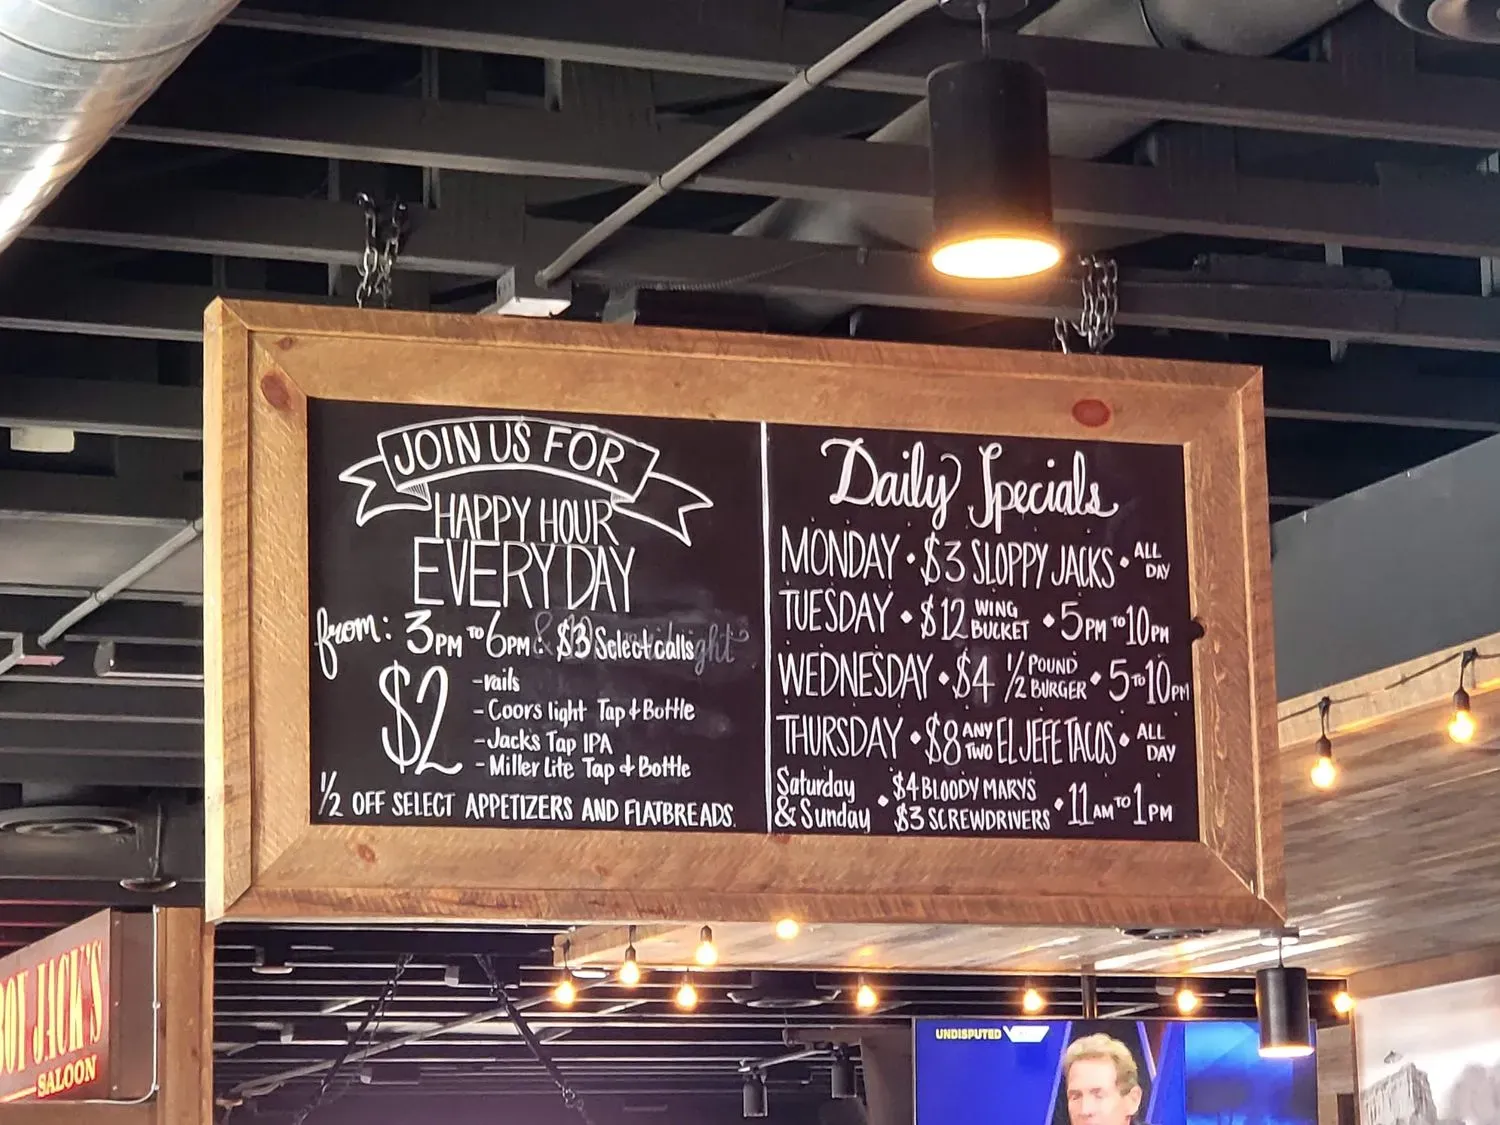 JOIN US FOR
HAPPY HOUR
EVERYDAY
from: 3PM TO 6PM: $3 Select calls
$2
-rails
-Coors light Tap & Bottle
-Jack's Tap IPA
-Miller Lite Tap & Bottle
1/2 OFF SELECT APPETIZERS AND FLATBREADS.
Daily Specials
MONDAY • $3 SLOPPY JACKS • ALL DAY
TUESDAY • $12 WING BUCKET • 5PM TO 10PM
WEDNESDAY • $4 1/2 POUND BURGER • 5 TO 10PM
THURSDAY • $8 ANY TWO EL JEFE TACOS • ALL DAY
Saturday & Sunday • $4 BLOODY MARYS
$3 SCREWDRIVERS • 11AM TO 1PM
OY JACK'S
SALOON
UNDISPUTED